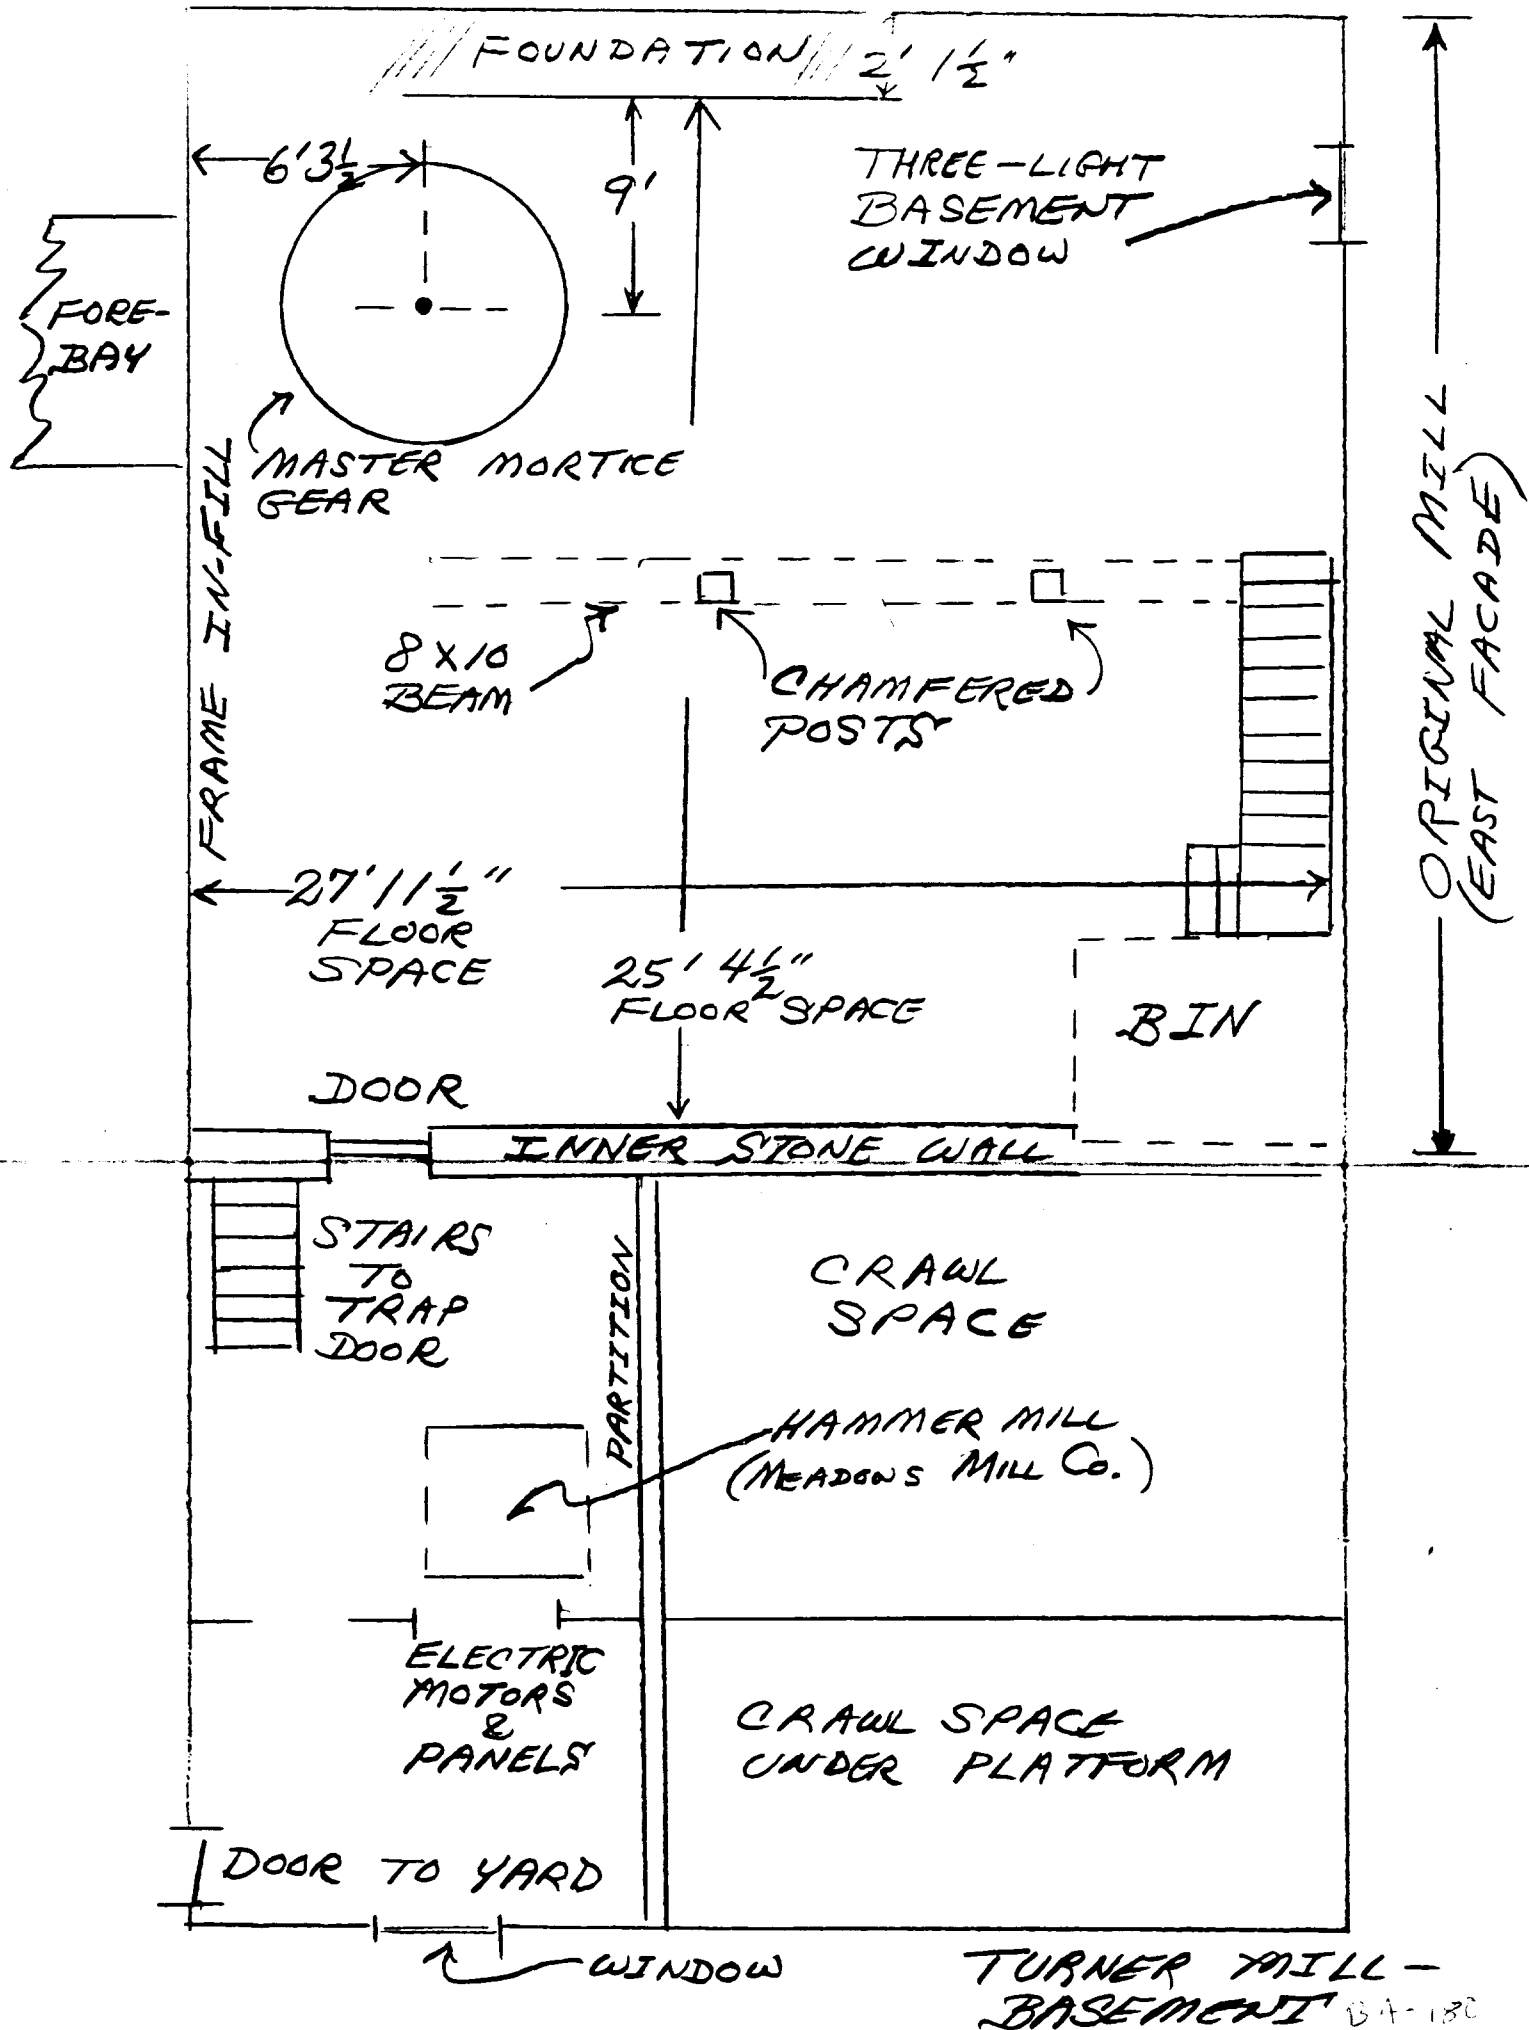 FOUNDATION
2' 1½"
6'3½
9'
THREE-LIGHT
BASEMENT
WINDOW
FORE-
BAY
MASTER MORTICE
GEAR
FRAME IN-FILL
8 X 10
BEAM
CHAMFERED
POSTS
ORIGINAL MILL
(EAST FACADE)
27' 11½"
FLOOR
SPACE
25' 4½"
FLOOR SPACE
BIN
DOOR
INNER STONE WALL
STAIRS
TO
TRAP
DOOR
PARTITION
CRAWL
SPACE
HAMMER MILL
(MEADOWS MILL CO.)
ELECTRIC
MOTORS
&
PANELS
CRAWL SPACE
UNDER PLATFORM
DOOR TO YARD
WINDOW
TURNER MILL -
BASEMENT